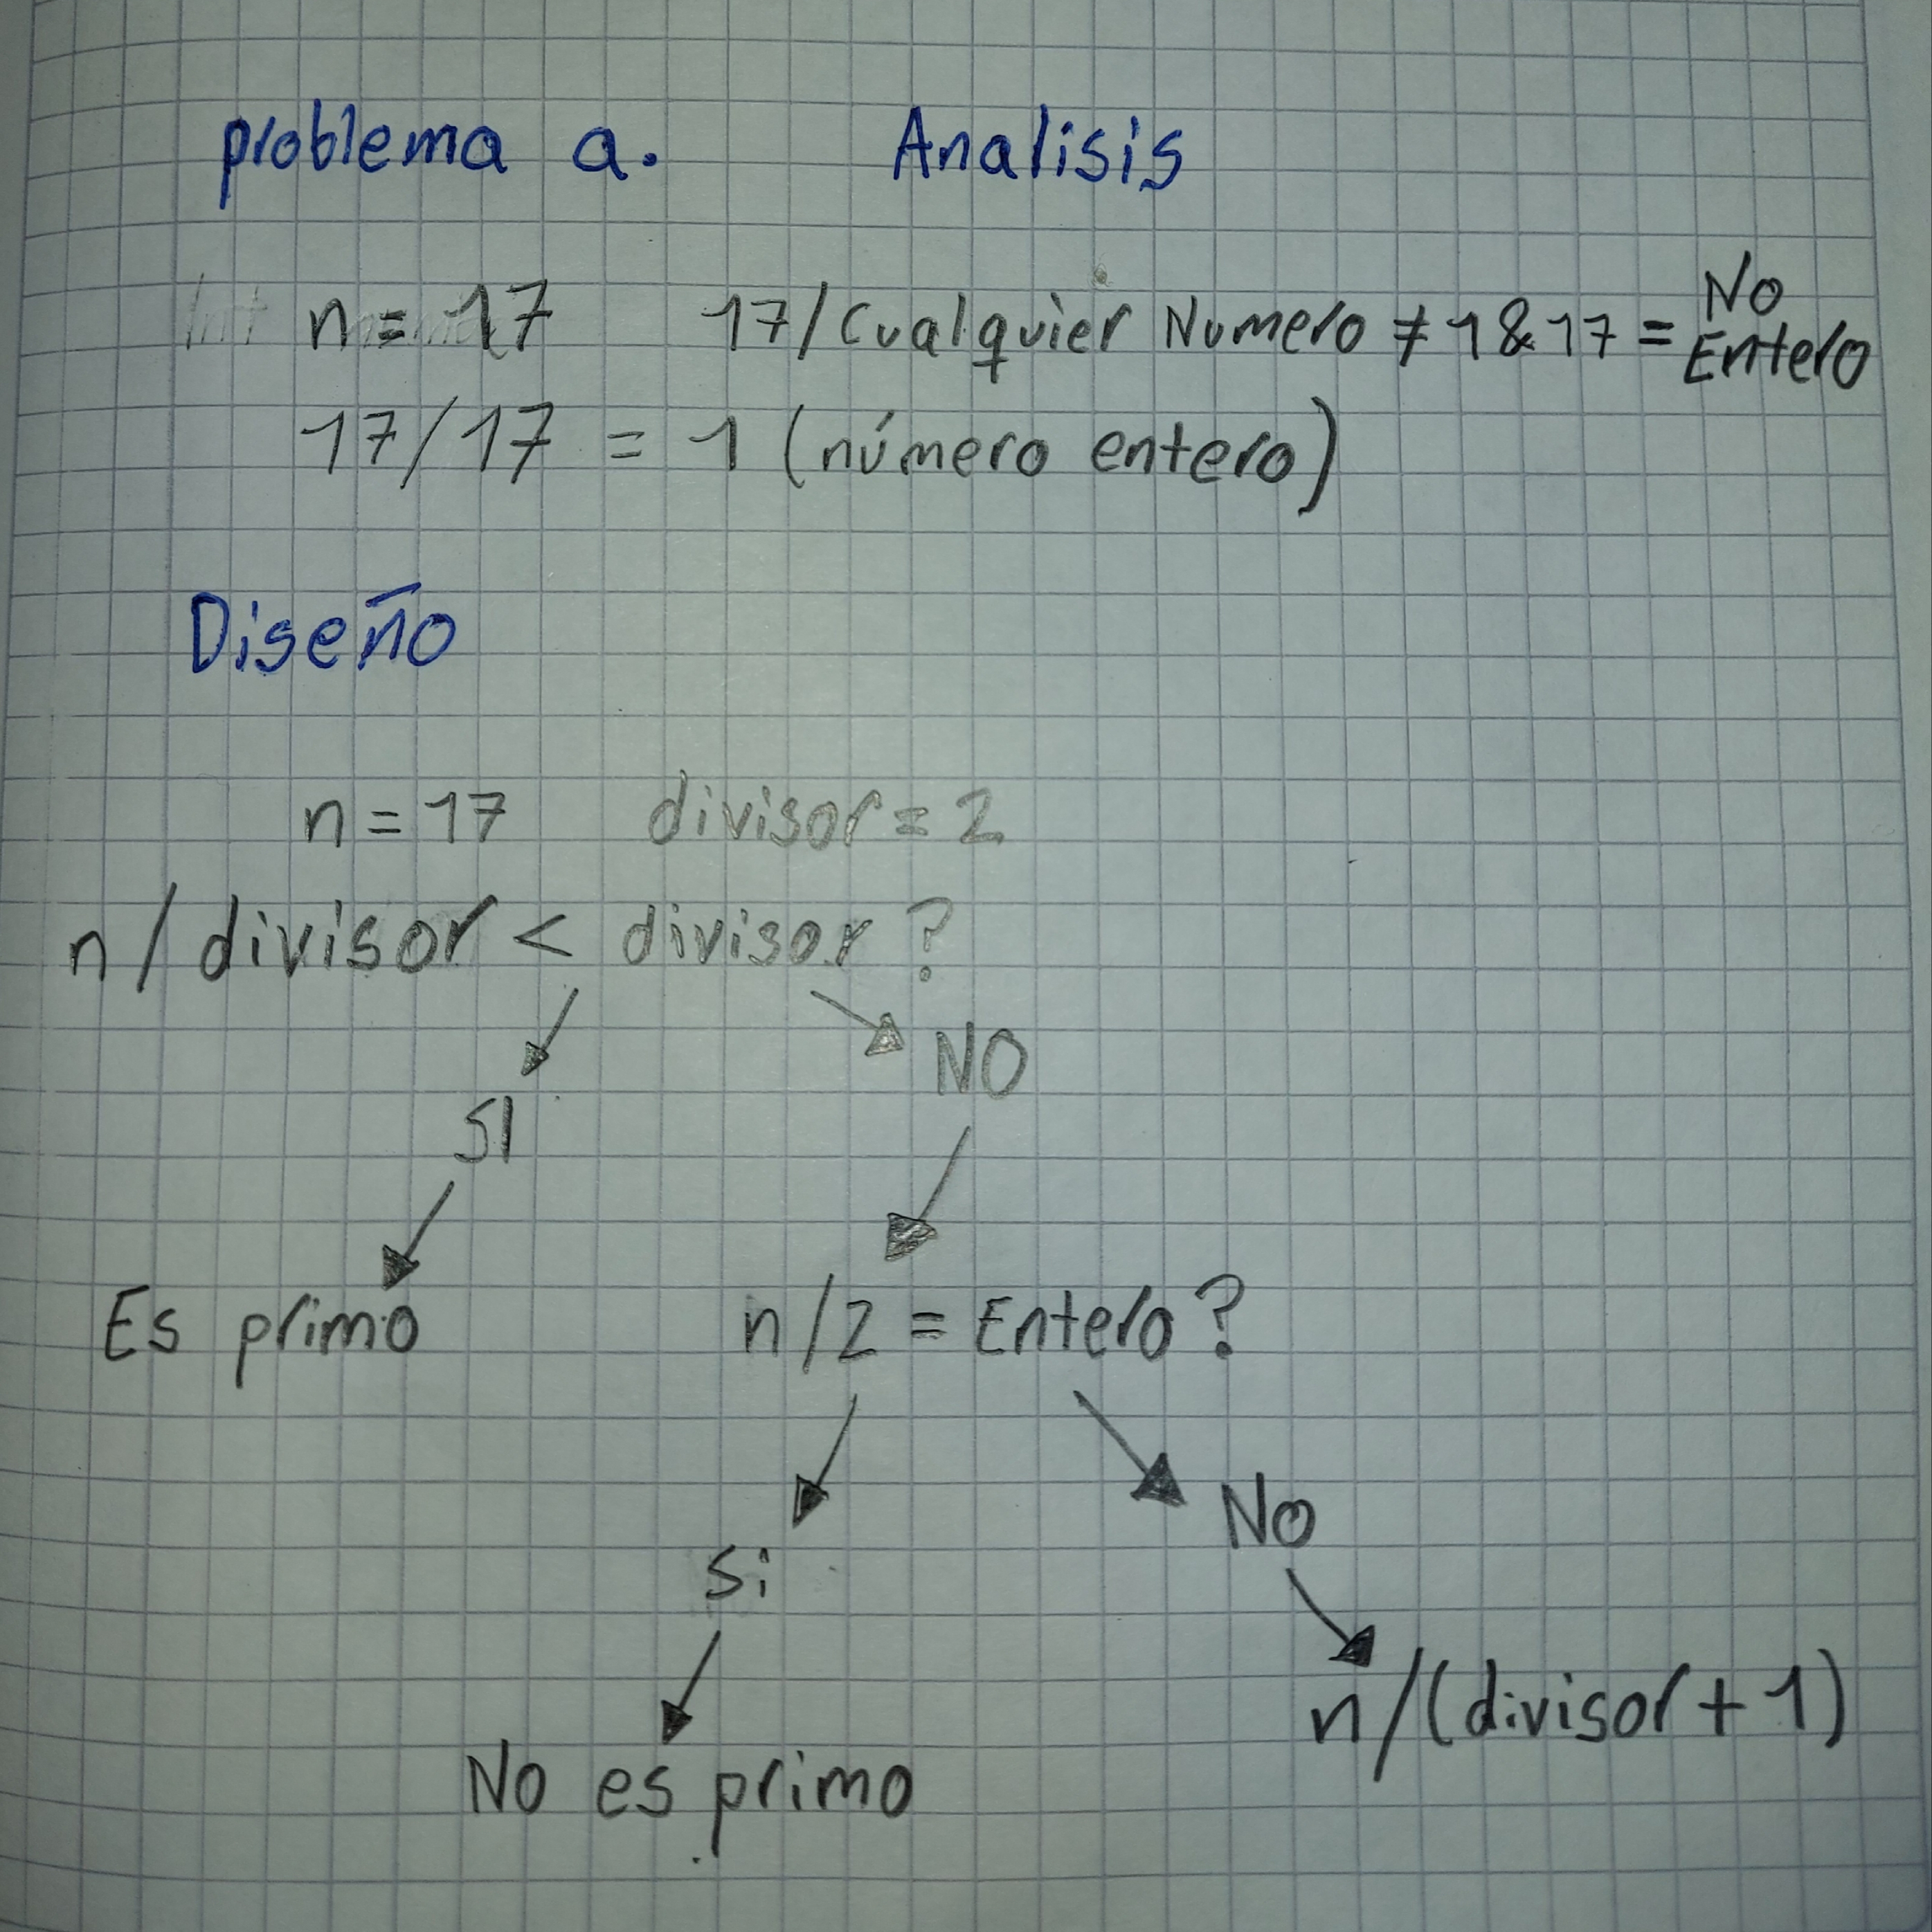 problema a. Analisis
Int n = 17 17/Cualquier Numero ≠ 1 & 17 = No Entero
17/17 = 1 (número entero)
Diseño
n = 17 divisor = 2
n / divisor < divisor ?
SI
NO
Es primo
n/2 = Entero?
Si
No
n/(divisor + 1)
No es primo